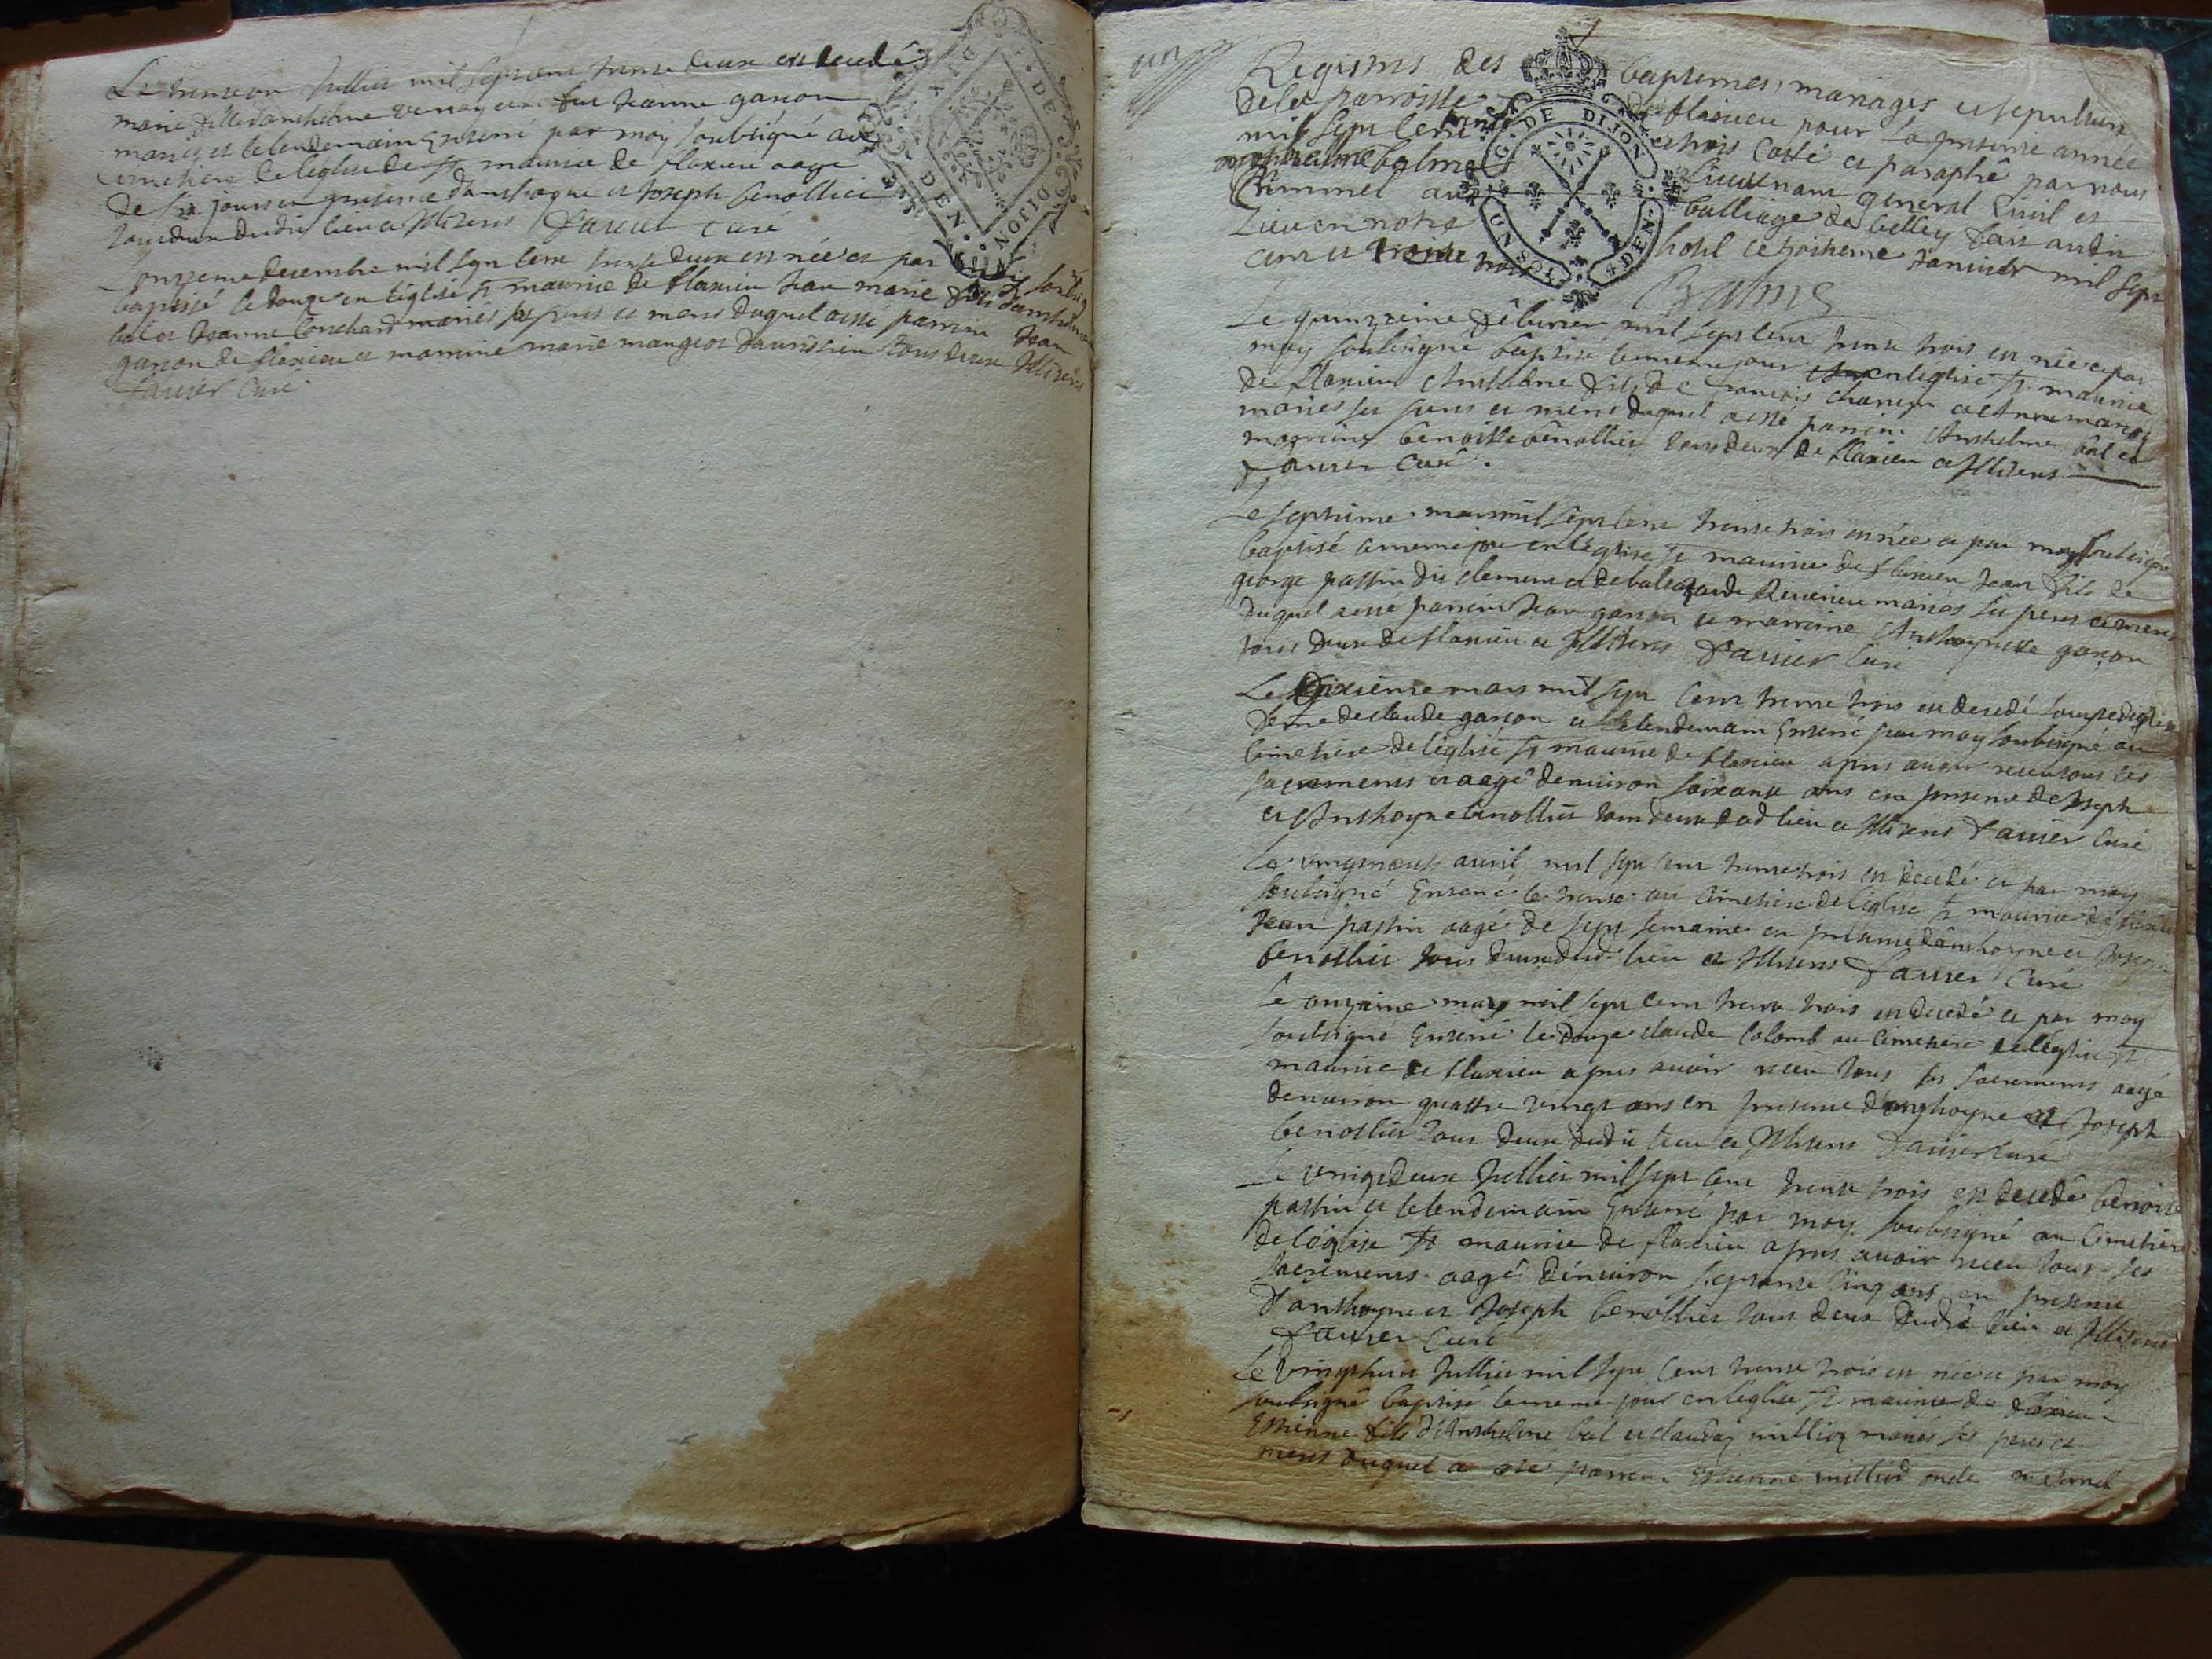 Le trenteun Jullier mil sept cens trente deux est decedé
marie fille danthelme et Jeanne garçon
mariés et lelendemain Enterré par moy soubsigné au
cimetiere de leglise de st maurice de flaxieu aagé
de six jours en presence danthoyne et Joseph benollier
tousdeux dudit lieu et Illiterés Favier curé
onzieme decembre mil sept cens trente deux est née et par moy soubsigné
baptisé le douze en leglise st maurice de flaxieu Jean marie fils danthelme
bal et Jeanne mariés ses peres et meres duquel a esté parrin Jean
garçon de flaxieu et marrine marie tous deux Illiterés
Favier Curé
un
Registre des baptemes, mariages et sepultures
dela parroisse de flaxieu pour la presente année
mil sept cent trente et trois Cotté et paraphé par nous
balme Lieutenant general Civil et
Criminel au balliage de belley fait audit
Lieu en notre hotel ce troisieme Janvier mil sept
cens et trente trois
Balme
Le quinzieme febvrier mil sept cens trente trois est née et par
moy soubsigné baptisé le meme jour en leglise st maurice
de flaxieu Anthelme fils de francois et Anne
mariés ses peres et meres duquel a esté parrin Anthelme bal et
marrine benoiste benollier tous deux de flaxieu et Illiterés
Favier curé.
Le septieme mars mil sept cens trente trois est née et par moy soubsigné
baptisé le meme jour en leglise st maurice de flaxieu Jean fils de
george passin dit clement et de mariés ses peres et meres
duquel a esté parrin Jean garçon et marrine Anthoynette garçon
tous deux de flaxieu et Illiterés Favier Curé
Le dixieme mars mil sept cens trente trois est decedé
feme de claude garçon et lelendemain Enterré par moy soubsigné au
Cimetiere de leglise st maurice de flaxieu apres avoir receu tous ses
sacrements et aagé denviron soixante ans en presence de Joseph
et Anthoyne benollier tous deux dud lieu et Illiterés Favier Curé
Le vingtneuf avril mil sept cens trente trois est decedé et par moy
soubsigné Enterré le trente au Cimetiere de leglise st maurice de flaxieu
Jean passin aagé de sept semaine en presence danthoyne et Joseph
benollier tous deux dud. lieu et Illiterés Favier Curé
Le onzieme may mil sept cens trente trois est decedé et par moy
soubsigné Enterré le douze claude Colomb au Cimetiere de leglise st
maurice de flaxieu apres avoir receu tous ses sacrements aagé
denviron quattre vingt ans en presence danthoyne et Joseph
benollier tous deux dudit lieu et Illiterés Favier curé
Le vingtdeux Jullier mil sept cens trente trois est decedé benoite
passin et lelendemain Enterré par moy soubsigné au Cimetiere
de leglise st maurice de flaxieu apres avoir receu tous ses
sacrements aagé denviron septante Cinq ans en presence
danthoyne et Joseph benollier tous deux dudit lieu et Illiterés
Favier Curé
Le vingthuit Jullier mil sept cens trente trois est née et par moy
soubsigné baptisé le meme jour en leglise st maurice de flaxieu
Estienne fils dAnthelme bal et mariés ses peres et
meres duquel a esté parrin Estienne oncle maternel
G. DE DIJON